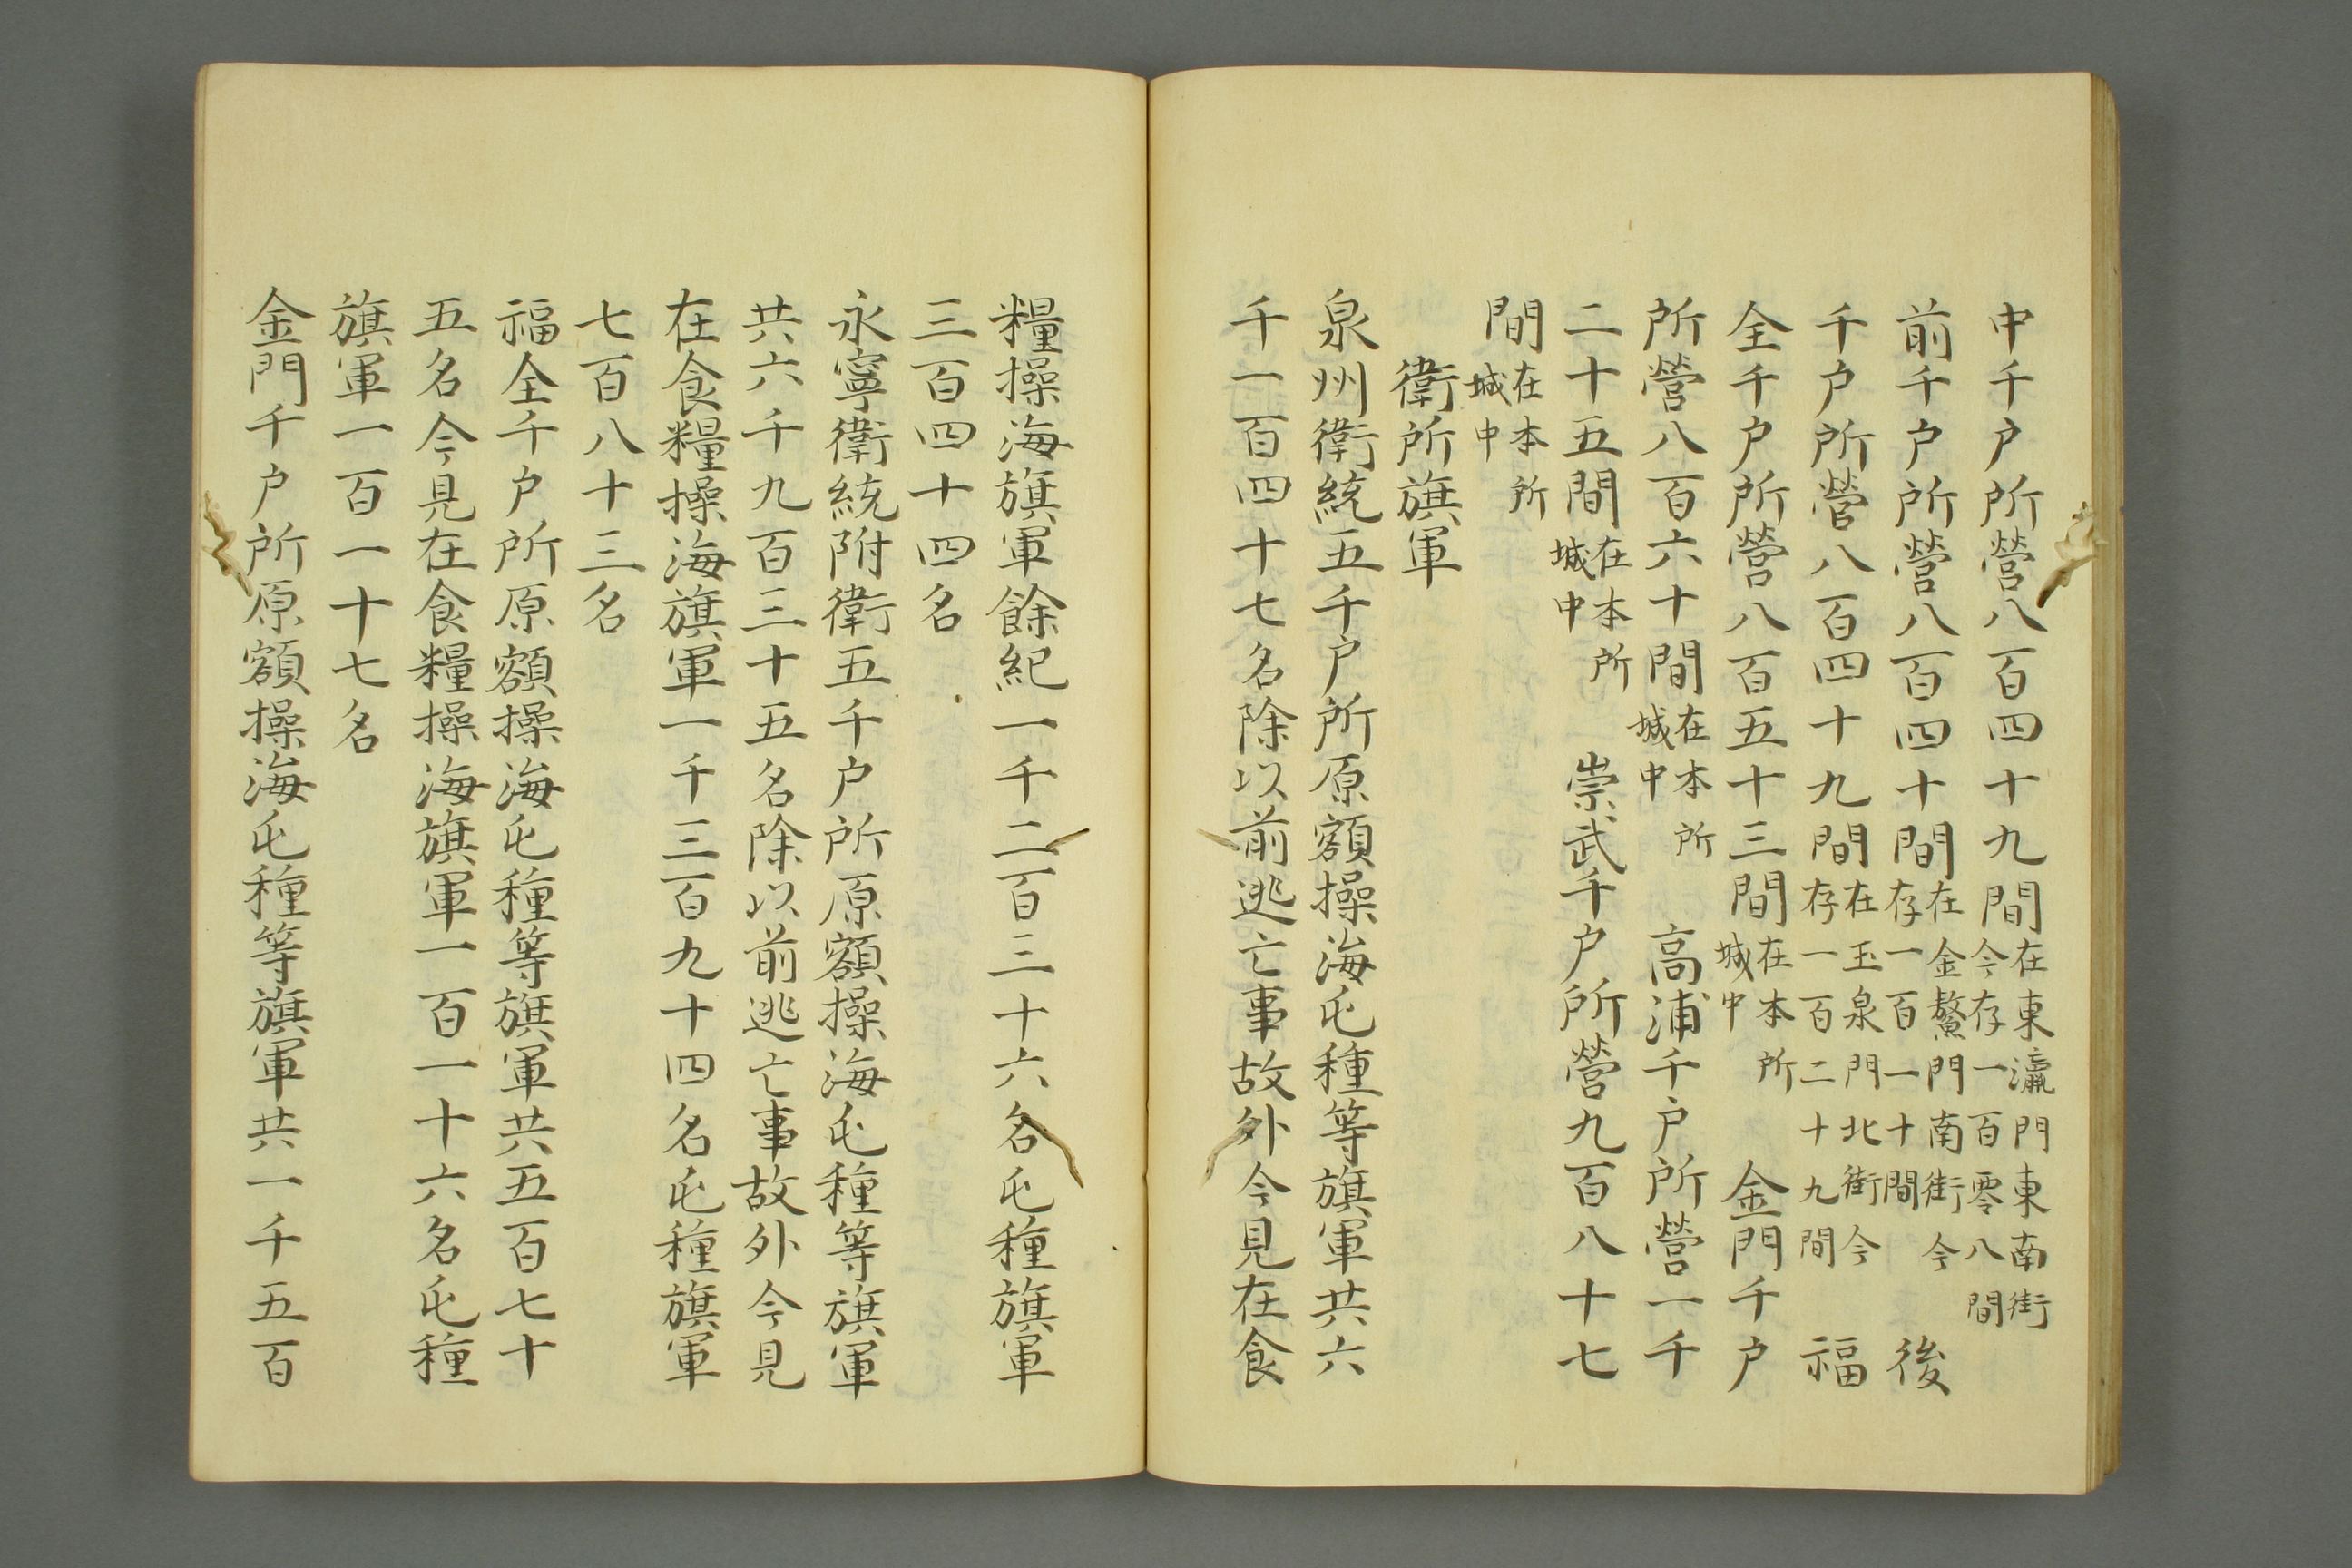 中千户所營八百四十九間在東瀛門東南街今存一百零八間
前千户所營八百四十間在金鰲門南街今存一百一十間　後
千户所營八百四十九間在玉泉門北街今存一百二十九間　福
全千户所營八百五十三間在本所城中　金門千户
所營八百六十間在本所城中　高浦千户所營一千
二十五間在本所城中　崇武千户所營九百八十七
間在本所城中
衛所旗軍
泉州衛統五千户所原額操海屯種等旗軍共六
千一百四十七名除以前逃亡事故外今見在食
糧操海旗軍餘紀一千二百三十六名屯種旗軍
三百四十四名
永寧衛統附衛五千户所原額操海屯種等旗軍
共六千九百三十五名除以前逃亡事故外今見
在食糧操海旗軍一千三百九十四名屯種旗軍
七百八十三名
福全千户所原額操海屯種等旗軍共五百七十
五名今見在食糧操海旗軍一百一十六名屯種
旗軍一百一十七名
金門千户所原額操海屯種等旗軍共一千五百